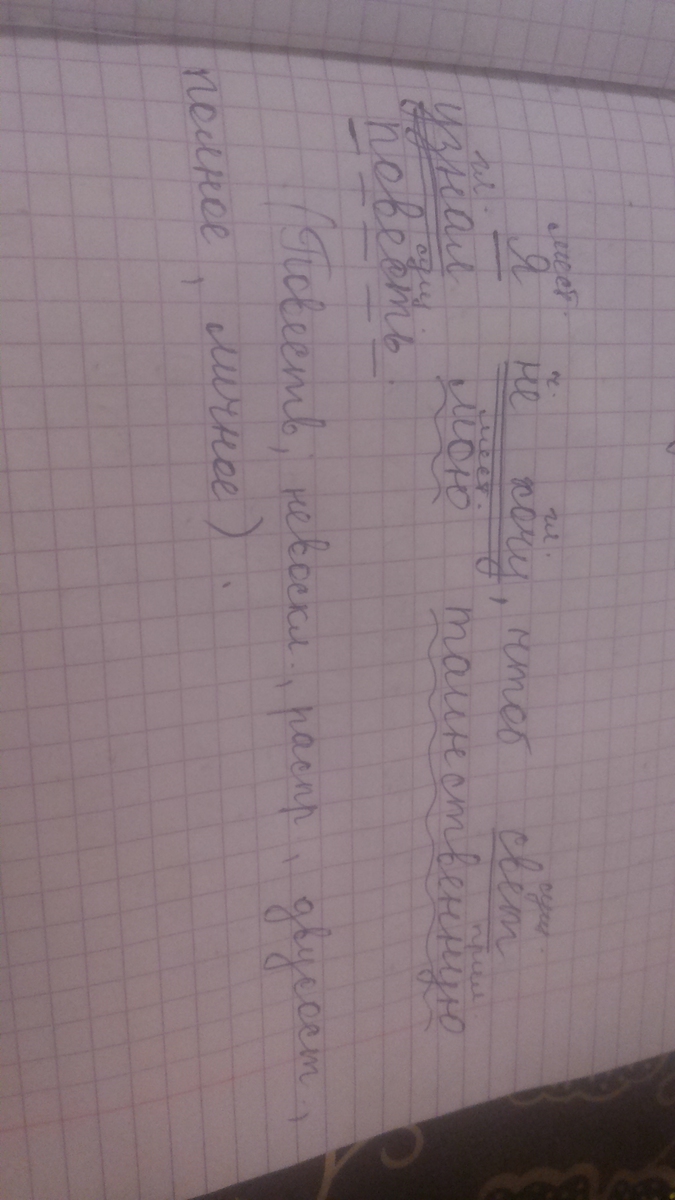 мест. ч. гл. сущ.
Я не хочу, чтоб свет
гл. мест. прил.
узнал мою таинственную
сущ.
повесть.
(Повеств, невоскл., распр, двусост,
полное, личное).